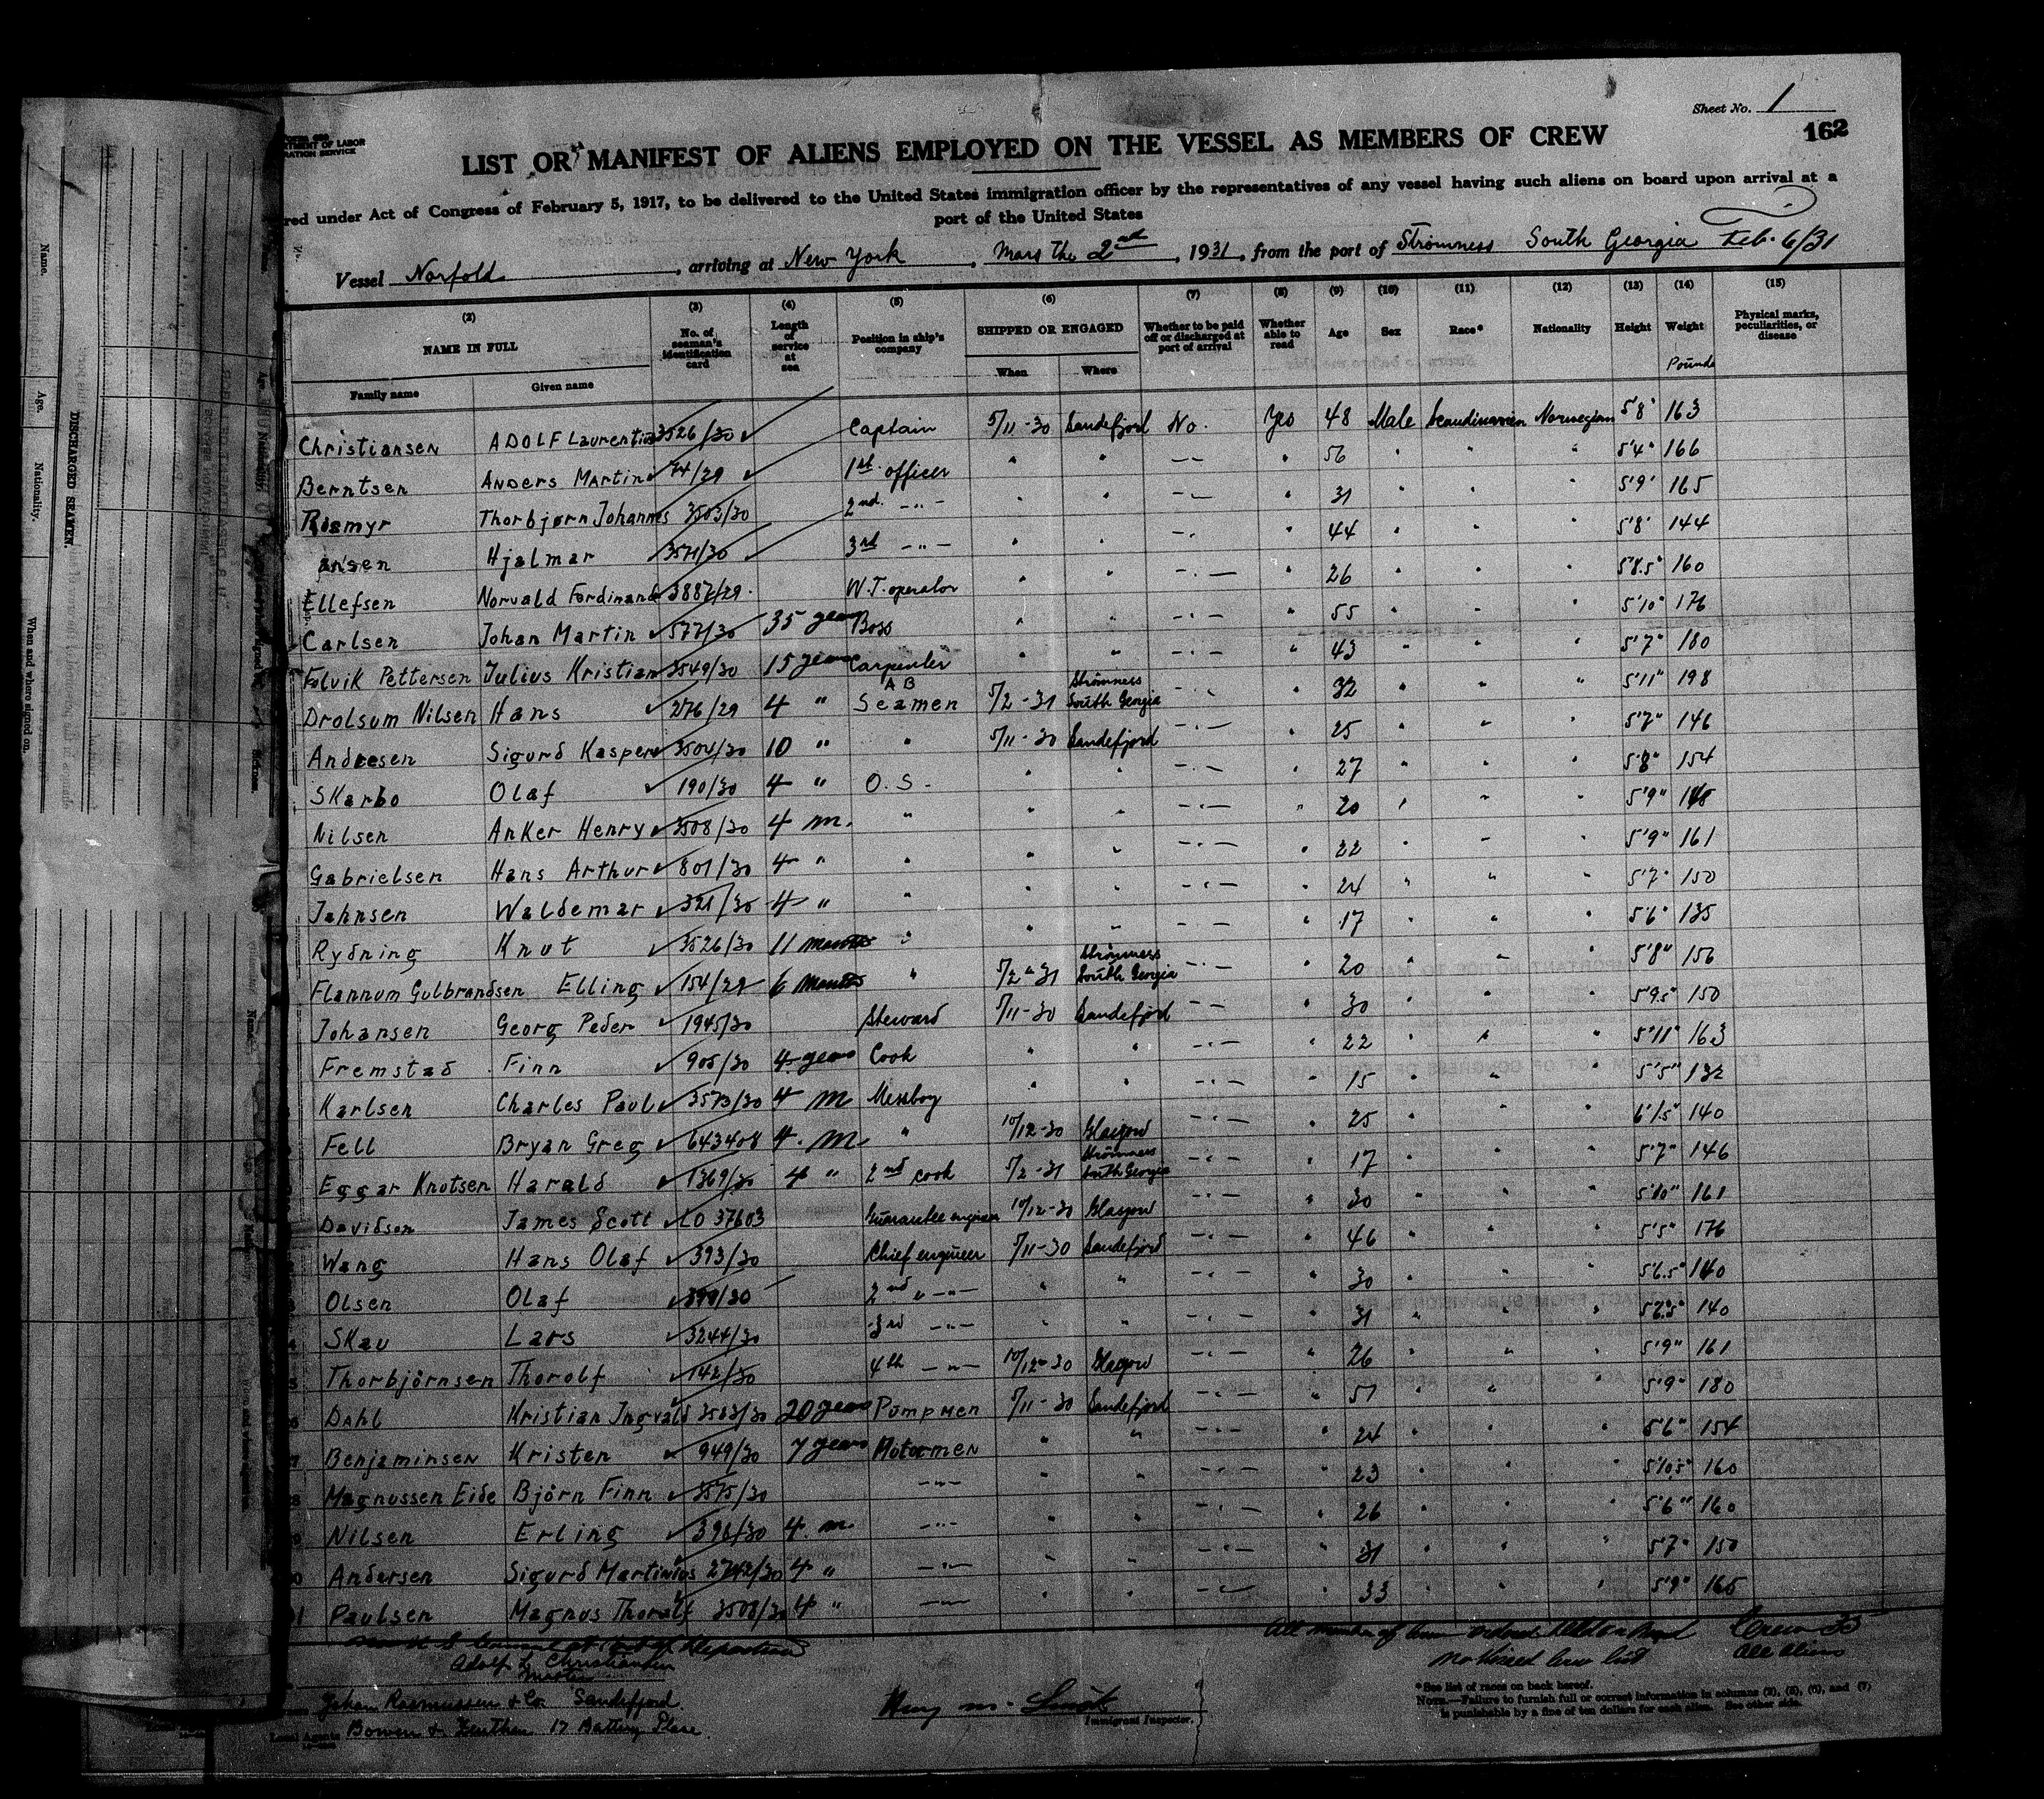 Sheet No. 1
162
LIST OR MANIFEST OF ALIENS EMPLOYED ON THE VESSEL AS MEMBERS OF CREW
red under Act of Congress of February 5, 1917, to be delivered to the United States immigration officer by the representatives of any vessel having such aliens on board upon arrival at a
port of the United States
Vessel Norfold, arriving at New York, Mars the 2nd, 1931, from the port of Strömness South Georgia Feb. 6/31
(2) (3) (4) (5) (6) (7) (8) (9) (10) (11) (12) (13) (14) (15)
NAME IN FULL No. of seaman's identification card Length of service at sea Position in ship's company SHIPPED OR ENGAGED Whether to be paid off or discharged at port of arrival Whether able to read Age Sex Race* Nationality Height Weight Physical marks, peculiarities, or disease
Family name Given name When Where Pounds
Christiansen ADOLF Laurentius 3526/30 Captain 5/11-30 Sandefjord No. Yes 48 Male Scandinavien Norwegian 5'8" 163
Berntsen ANDErs Martin 74/29 1st. officer " " -"- " 56 " " " 5'4" 166
Rismyr Thorbjørn Johannes 3503/30 2nd. -"- " " -"- " 31 " " " 5'9" 165
Hjalmar 3571/30 3rd -"- " " -"- " 44 " " " 5'8" 144
Ellefsen Norvald Ferdinand 3887/29 W.T. operator " " -"- " 26 " " " 5'8.5" 160
Carlsen Johan Martin 577/30 35 years Boss " " -"- " 55 " " " 5'10" 176
Folvik Pettersen Julius Kristian 3549/30 15 years Carpenter " " -"- " 43 " " " 5'7" 180
Drolsum Nilsen Hans 276/29 4 " AB Seamen 5/2-31 Strömness South Georgia -"- " 32 " " " 5'11" 198
Andresen Sigurd Kasper 3504/30 10 " " 5/11-30 Sandefjord -"- " 25 " " " 5'7" 146
Skarbo Olaf 190/30 4 " O.S. " " -"- " 27 " " " 5'8" 154
Nilsen Anker Henry 3508/30 4 m. " " " -"- " 20 " " " 5'9" 148
Gabrielsen Hans Arthur 801/30 4 " " " " -"- " 22 " " " 5'9" 161
Jahnsen Waldemar 321/30 4 " " " " -"- " 24 " " " 5'7" 150
Rydning Knut 3526/30 11 months " " " -"- " 17 " " " 5'6" 135
Flannum Gulbrandsen Elling 154/29 6 months " 5/2-31 Strömness South Georgia -"- " 20 " " " 5'8" 156
Johansen Georg Peder 1945/30 Steward 5/11-30 Sandefjord -"- " 30 " " " 5'9.5" 150
Fremstad Finn 905/30 4 years Cook " " -"- " 22 " " " 5'11" 163
Karlsen Charles Paul 3573/30 4 m Messboy " " -"- " 15 " " " 5'5" 132
Fell Bryan Greg 643408 4. m. " 10/12-30 Glasgow -"- " 25 " " " 6'1/5" 140
Eggar Knutsen Harald 1369/30 4 " 2nd cook 5/2-31 Strömness South Georgia -"- " 17 " " " 5'7" 146
Davidsen James Scott LO 37603 Guarantee engineer 10/12-30 Glasgow -"- " 30 " " " 5'10" 161
Wang Hans Olaf 393/30 Chief engineer 5/11-30 Sandefjord -"- " 46 " " " 5'5" 176
Olsen Olaf 390/30 2nd -"- " " -"- " 30 " " " 5'6.5" 140
Skau Lars 3244/30 3rd -"- " " -"- " 31 " " " 140
Thorbjörnsen Thorolf 142/30 4th -"- 10/12-30 Glasgow -"- " 26 " " " 5'9" 161
Dahl Kristian Ingvald 3583/30 20 years Pumpmen 5/11-30 Sandefjord -"- " 51 " " " 5'9" 180
Benjaminsen Kristen 949/30 7 years Motormen " " -"- " 24 " " " 5'6" 154
Magnussen Eide Björn Finn 3575/30 -"- " " -"- " 23 " " " 5'10.5" 160
Nilsen Erling 396/30 4 m. -"- " " -"- " 26 " " " 5'6" 160
Andersen Sigurd Martinius 2742/30 4 " -"- " " -"- " 31 " " " 5'7" 150
Paulsen Magnus Thoralf 3508/30 4 " -"- " " -"- " 33 " " " 5'9" 165
Adolf L Christiansen
Master
Johan Rasmussen & Co. Sandefjord.
Local Agents Bowen & 17 Battery Place.
Immigrant Inspector.
Crew 35
All aliens
no crew list
*See list of races on back hereof.
NOTE.—Failure to furnish full or correct information in columns (2), (5), (6), and (7)
is punishable by a fine of ten dollars for each alien. See other side.
DISCHARGED SEAMEN.
Name.
Age.
Nationality.
When and where signed on.